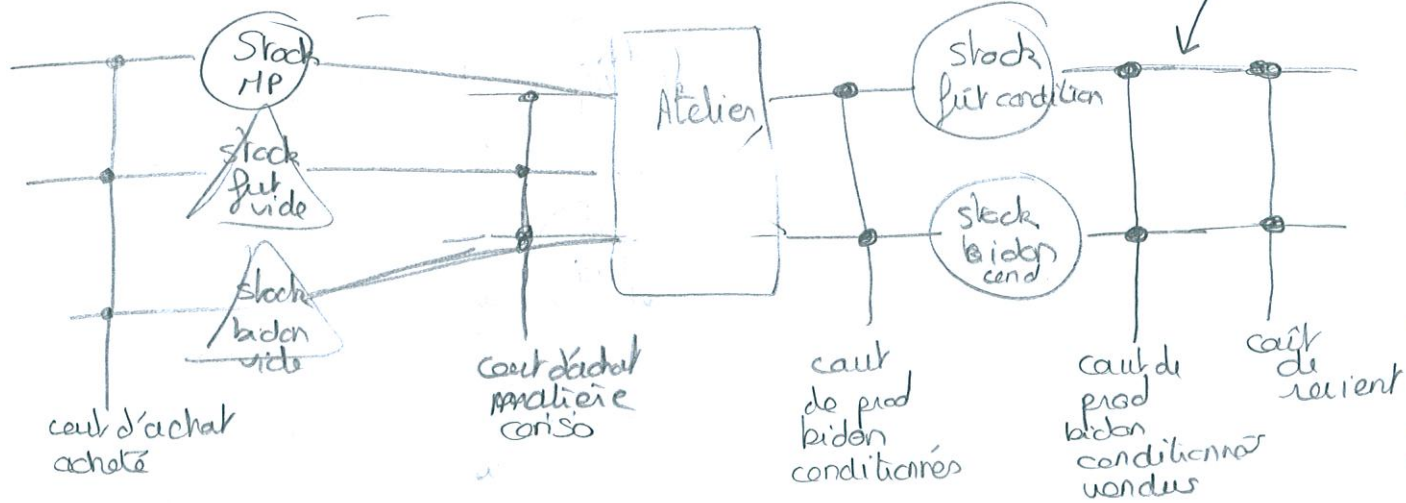 Stock
MP
stock
fut
vide
stock
bidon
vide
Atelier
stock
fût condition
stock
bidon
cond
cout d'achat
acheté
cout d'achat
matière
conso
cout
de prod
bidon
conditionnés
cout de
prod
bidon
conditionnés
vendus
coût
de
revient